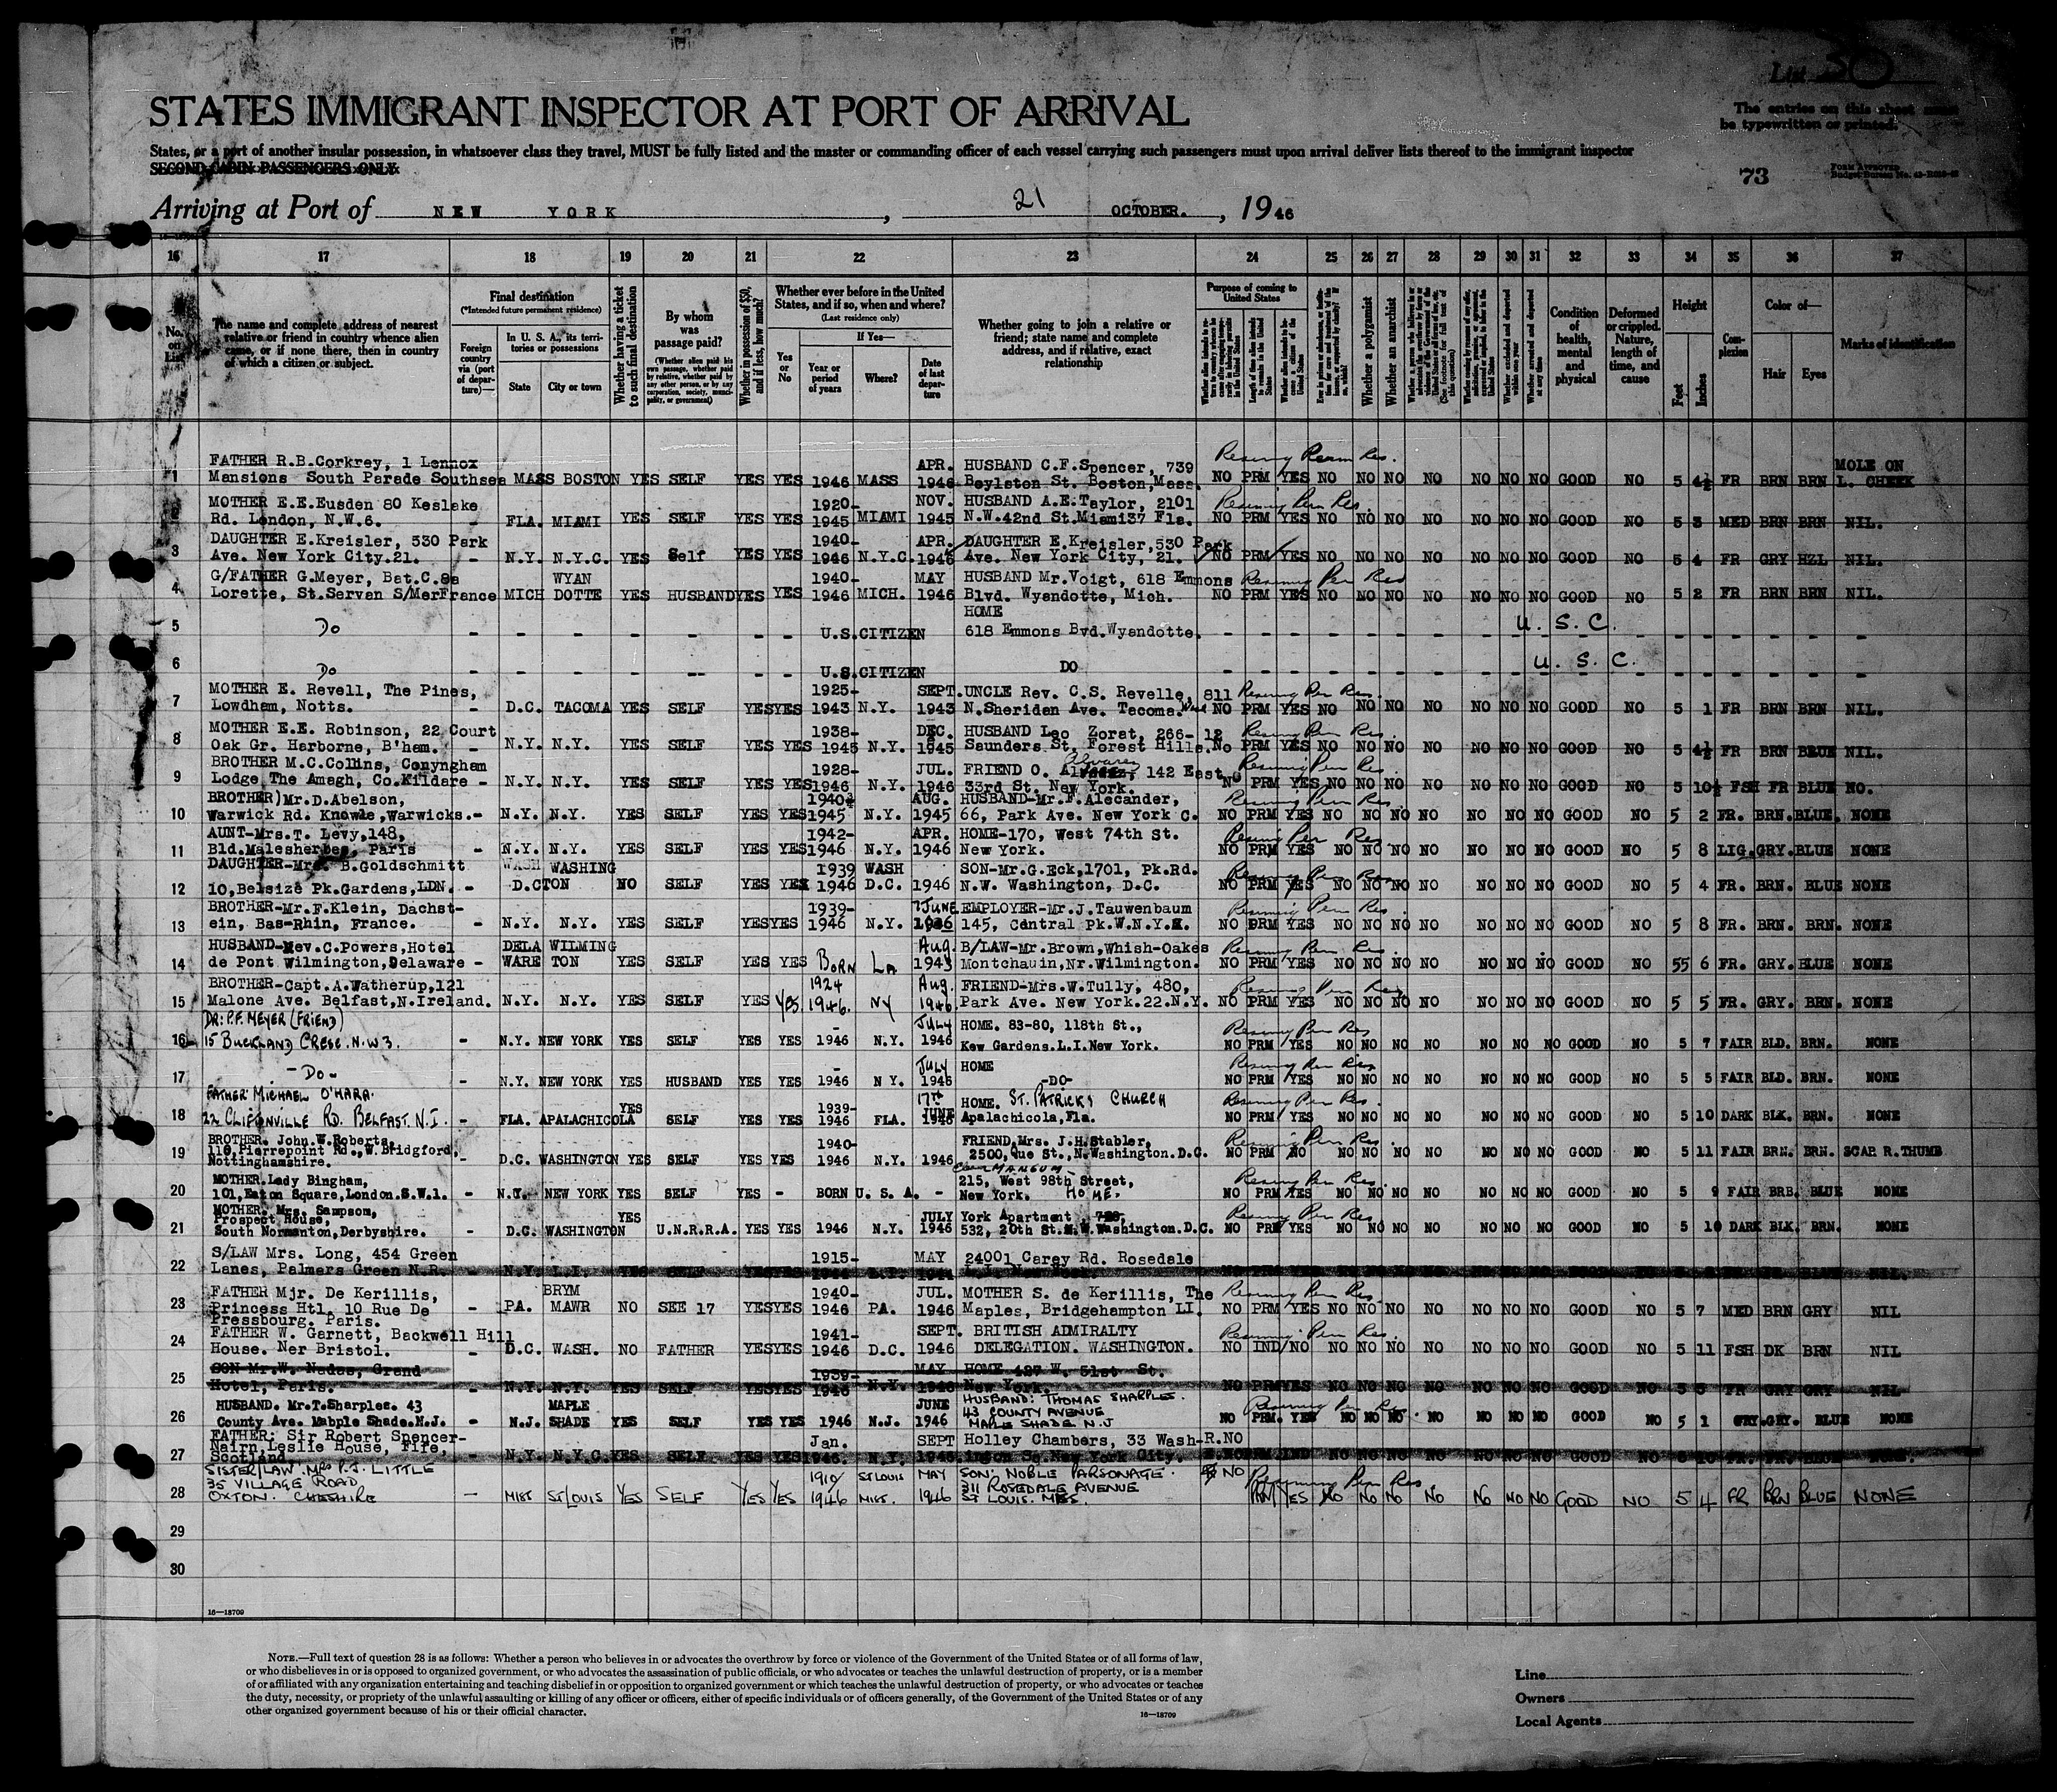 List 50
STATES IMMIGRANT INSPECTOR AT PORT OF ARRIVAL
The entries on this sheet must
be typewritten or printed.
States, or a port of another insular possession, in whatsoever class they travel, MUST be fully listed and the master or commanding officer of each vessel carrying such passengers must upon arrival deliver lists thereof to the immigrant inspector
SECOND-CABIN PASSENGERS ONLY
73
FORM APPROVED
Arriving at Port of NEW YORK, 21 OCTOBER., 1946
16 17 18 19 20 21 22 23 24 25 26 27 28 29 30 31 32 33 34 35 36 37
No. on List
The name and complete address of nearest relative or friend in country whence alien came, or if none there, then in country of which a citizen or subject.
Final destination
(*Intended future permanent residence)
Foreign country via (port of departure)—
In U. S. A., its territories or possessions
State
City or town
Whether having a ticket to such final destination
By whom was passage paid?
(Whether alien paid his own passage, whether paid by relative, whether paid by any other person, or by any corporation, society, municipality, or government)
Whether in possession of $50, and if less, how much?
Whether ever before in the United States, and if so, when and where?
(Last residence only)
Yes or No
If Yes—
Year or period of years
Where?
Date of last departure
Whether going to join a relative or friend; state name and complete address, and if relative, exact relationship
Purpose of coming to United States
Whether a polygamist
Whether an anarchist
Condition of health, mental and physical
Deformed or crippled. Nature, length of time, and cause
Height
Feet
Inches
Complexion
Color of—
Hair
Eyes
Marks of identification
FATHER R.B.Corkrey, 1 Lennox APR. HUSBAND C.F.Spencer, 739 Resuming Perm Res. MOLE ON
1 Mansions South Parade Southsea MASS BOSTON YES SELF YES YES 1946 MASS 1946 Boylston St. Boston,Mass. NO PRM YES NO NO NO NO NO NO NO GOOD NO 5 4½ FR BRN BRN L. CHEEK
MOTHER E.E.Eusden 80 Keslake 1920- NOV. HUSBAND A.E.Taylor, 2101 Resuming Per Res.
Rd. London, N.W.6. - FLA. MIAMI YES SELF YES YES 1945 MIAMI 1945 N.W.42nd St.Miami37 Fla. NO PRM YES NO NO NO NO NO NO NO GOOD NO 5 3 MED BRN BRN NIL.
DAUGHTER E.Kreisler, 530 Park 1940- APR. DAUGHTER E.Kreisler,530 Park
3 Ave. New York City.21. - N.Y. N.Y.C. YES Self YES YES 1946 N.Y.C. 1946 Ave. New York City, 21. NO PRM YES NO NO NO NO NO NO NO GOOD NO 5 4 FR GRY HZL NIL.
G/FATHER G.Meyer, Bat.C.8a WYAN 1940- MAY HUSBAND Mr.Voigt, 618 Emmons Resuming Per Res
4 Lorette, St.Servan S/MerFrance MICH DOTTE YES HUSBAND YES YES 1946 MICH. 1946 Blvd. Wyandotte, Mich. NO PRM YES NO NO NO NO NO NO NO GOOD NO 5 2 FR BRN BRN NIL.
HOME
5 Do - - - - - - - U.S.CITIZEN 618 Emmons Bvd.Wyandotte. U. S. C.
6 Do - - - - - - - U.S.CITIZEN DO U. S. C.
MOTHER E. Revell, The Pines, 1925- SEPT. UNCLE Rev. C.S. Revelle, 811 Resuming Per Res.
7 Lowdham, Notts. - D.C. TACOMA YES SELF YES YES 1943 N.Y. 1943 N.Sheridan Ave. Tacoma. NO PRM YES NO NO NO NO NO NO NO GOOD NO 5 1 FR BRN BRN NIL.
MOTHER E.E. Robinson, 22 Court 1938- DEC. HUSBAND Leo Zorat, 266-12 Resuming Per Res.
8 Oak Gr. Harborne, B'ham. - N.Y. N.Y. YES SELF YES YES 1945 N.Y. 1945 Saunders St, Forest Hills. No PRM YES NO NO NO NO NO NO NO GOOD NO 5 4½ FR BRN BLUE NIL.
BROTHER M.C.Collins, Conyngham 1928- JUL. FRIEND O. Alvarez, 142 East Resuming Per Res.
9 Lodge The Amagh, Co.Kildare - N.Y. N.Y. YES SELF YES YES 1946 N.Y. 1946 33rd St. New York. NO PRM YES NO NO NO NO NO NO NO GOOD NO 5 10½ FSH FR BLUE NO.
BROTHER)Mr.D.Abelson, 1940- AUG. HUSBAND-Mr.F.Alecander, Resuming Per Res.
10 Warwick Rd. Knowle,Warwicks.- N.Y. N.Y. YES SELF YES YES 1945 N.Y. 1945 66, Park Ave. New York C. NO PRM YES NO NO NO NO NO NO NO GOOD NO 5 2 FR. BRN. BLUE. NONE
AUNT-Mrs.T. Levy,148, 1942- APR. HOME-170, West 74th St. Resuming Per Res
11 Bld.Malesherbes, Paris - N.Y. N.Y. YES SELF YES YES 1946 N.Y. 1946 New York. NO PRM YES NO NO NO NO NO NO NO GOOD NO 5 8 LIG. GRY. BLUE NONE
DAUGHTER-Mrs. B.Goldschmitt WASH WASHING 1939 WASH SON-Mr.G.Eck,1701, Pk.Rd. Resuming Per Res
12 10,Belsize Pk.Gardens,LDN. - D.C TON NO SELF YES YES 1946 D.C. 1946 N.W. Washington, D.C. NO PRM YES NO NO NO NO NO NO NO GOOD NO 5 4 FR. BRN. BLUE NONE
BROTHER-Mr.F.Klein, Dachst- 1939- JUNE EMPLOYER-Mr.J.Tauwenbaum Resuming Per Res.
13 ein, Bas-Rhin, France. - N.Y. N.Y. YES SELF YES YES 1946 N.Y. 1946 145, Central Pk.W.N.Y. NO PRM YES NO NO NO NO NO NO NO GOOD NO 5 8 FR. BRN. BRN. NONE
HUSBAND-Rev.C.Powers,Hotel DELA WILMING Aug. B/LAW-Mr.Brown,Whish-Oakes Resuming Per Res.
14 de Pont Wilmington,Delaware - WARE TON YES SELF YES YES BORN LA 1943 Montchauin,Nr.Wilmington. NO PRM YES NO NO NO NO NO NO NO GOOD NO 55 6 FR. GRY. BLUE NONE
BROTHER-Capt.A.Watherup,121 1924 Aug. FRIEND-Mrs.W.Tully, 480, Resuming Per Res
15 Malone Ave. Belfast,N.Ireland. N.Y. N.Y. YES SELF YES YES. 1946. NY 1946. Park Ave. New York.22.N.Y. NO PRM YES NO NO NO NO NO NO NO GOOD NO 5 5 FR. GRY. BRN. NONE
DR: P.F. MEYER (FRIEND) - JULY HOME. 83-80, 118th St., Resuming Per Res
16 15 BUCKLAND CRESC. N.W 3. - N.Y. NEW YORK YES SELF YES YES 1946 N.Y. 1946 Kew Gardens.L.I.New York. NO PRM YES NO NO NO NO NO NO NO GOOD NO 5 7 FAIR BLD. BRN. NONE
- JULY HOME Resuming Per Res
17 -Do- - N.Y. NEW YORK YES HUSBAND YES YES 1946 N Y. 1946 -DO- NO PRM YES NO NO NO NO NO NO NO GOOD NO 5 5 FAIR BLD. BRN. NONE
FATHER MICHAEL O'HARA. YES 1939- 17th JUNE HOME. ST. PATRICKS CHURCH Resuming Per Res.
18 22 CLIFTONVILLE RD. BELFAST. N.I. - FLA. APALACHICOLA SELF YES YES 1946 FLA. 1946 Apalachicola,Fla. NO PRM YES NO NO NO NO NO NO NO GOOD NO 5 10 DARK BLK. BRN. NONE
BROTHER. John.W.Roberts, 1940- FRIEND,Mrs. J.H.Stabler, Resuming Per Res
19 118,Pierrepoint Rd.,W.Bridgford, D.C. WASHINGTON YES SELF YES YES 1946 N.Y. 1946 2500,Que St.,N.Washington.D.C. NO PRM NO NO NO NO NO NO NO NO GOOD NO 5 11 FAIR BRN. BRN. SCAR R.THUMB
Nottinghamshire.
MOTHER.Lady Bingham, 215, West 98th Street, Resuming Per Res.
20 101,Eaton Square,London.S.W.1. - N.Y. NEW YORK YES SELF YES - BORN U. S. A. - New York. HOME. NO PRM YES NO NO NO NO NO NO NO GOOD NO 5 9 FAIR BRB. BLUE NONE
MOTHER. Mrs. Sampsom, YES JULY York Apartment Resuming Per Res
Prospect House,
21 South Normanton,Derbyshire. - D.C. WASHINGTON U.N.R.R.A. YES YES 1946 N.Y. 1946 532, 20th St.N.W.Washington.D.C. NO PRM YES NO NO NO NO NO NO NO GOOD NO 5 10 DARK BLK. BRN. NONE
S/LAW Mrs. Long, 454 Green 1915- MAY 24001 Carey Rd. Rosedale
22 Lanes, Palmers Green N.R. - N.Y. L.I. YES SELF YES YES BLUE NIL.
FATHER Mjr. De Kerillis, BRYM 1940- JUL. MOTHER S. de Kerillis, The Resuming Per Res.
23 Princess Htl. 10 Rue De - PA. MAWR NO SEE 17 YES YES 1946 PA. 1946 Maples, Bridgehampton LI. NO PRM YES NO NO NO NO NO NO NO GOOD NO 5 7 MED BRN GRY NIL
Pressbourg. Paris.
FATHER W. Garnett, Backwell Hill 1941- SEPT. BRITISH ADMIRALTY Resuming Per Res.
24 House. Ner Bristol. D.C. WASH. NO FATHER YES YES 1946 D.C. 1946 DELEGATION. WASHINGTON. NO IND/NO NO NO NO NO NO NO NO GOOD NO 5 11 FSH DK BRN NIL
SON Mr.W. Nadas, Grand 1939- MAY HOME 427 W. 51st St.
25 Hotel, Paris. - N.Y. N.Y. YES SELF YES YES 1946 N.Y. 1946 New York. NO PRM YES NO NO NO NO NO NO NO GOOD NO 5 5 FR GRY GRY NIL
HUSBAND. Mr.T.Sharples. 43 MAPLE JUNE HUSBAND: THOMAS SHARPLES. Resuming Per Res.
26 County Ave. Mabple Shade.N.J. - N.J. SHADE YES SELF YES YES 1946 N.J. 1946 43 COUNTY AVENUE NO PRM. YES NO NO NO NO NO NO NO GOOD NO 5 1 GRY. BLUE NONE
MAPLE SHADE N.J
FATHER: Sir Robert Spencer- Jan. SEPT Holley Chambers, 33 Wash- R.NO
27 Nairn,Leslie House, Fife, - N.Y. N.Y.C. YES SELF YES YES 1946. N.Y. 1946 ington Sq.New York City. NO NO NO NO NO NO NO GOOD NO NONE.
Scotland.
SISTER/LAW. MRS P.J. LITTLE 1919/ ST LOUIS MAY SON: NOBLE PARSONAGE. NO Resuming Per Res
35 VILLAGE ROAD 311 ROSEDALE AVENUE
28 OXTON. CHESHIRE — MISS ST LOUIS YES SELF YES YES 1946 MISS. 1946 ST LOUIS. MISS. PRM YES NO NO NO NO NO NO NO GOOD NO 5 4 FR BRN BLUE NONE
29
30
16—18709
NOTE.—Full text of question 28 is as follows: Whether a person who believes in or advocates the overthrow by force or violence of the Government of the United States or of all forms of law,
or who disbelieves in or is opposed to organized government, or who advocates the assassination of public officials, or who advocates or teaches the unlawful destruction of property, or is a member
of or affiliated with any organization entertaining and teaching disbelief in or opposition to organized government or which teaches the unlawful destruction of property, or who advocates or teaches
the duty, necessity, or propriety of the unlawful assaulting or killing of any officer or officers, either of specific individuals or of officers generally, of the Government of the United States or of any
other organized government because of his or their official character.
16—18709
Line
Owners
Local Agents